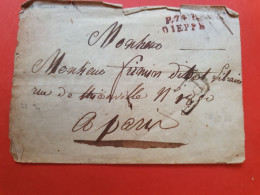 P.74.P.
DIEPPE
Monsieur
Monsieur firmin didot Libraire
rue de thionville N°
a paris